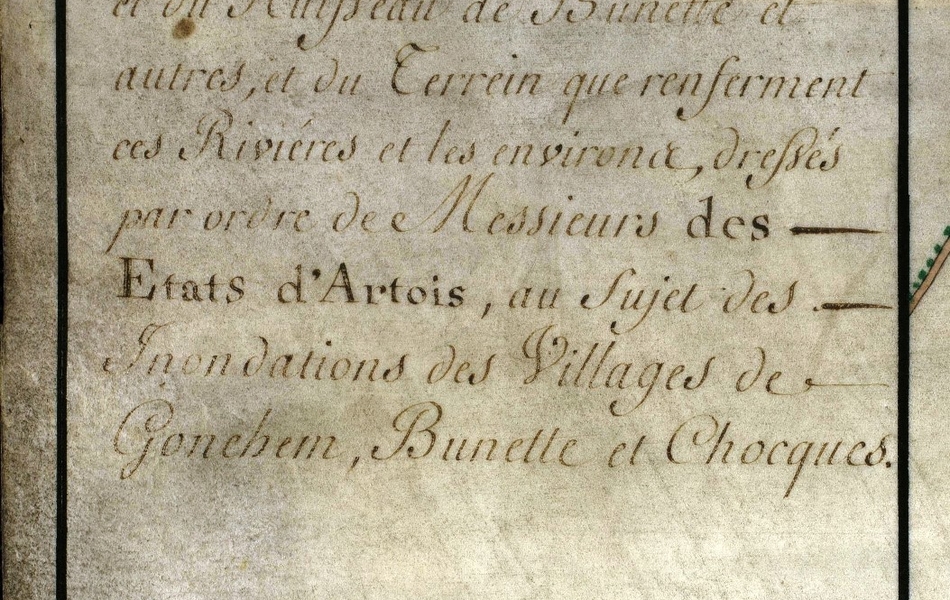 et du Ruisseau de Bunette et
autres, et du Terrein que renferment
ces Riviéres et les environs, dressés
par ordre de Messieurs des —
Etats d'Artois, au Sujet des —
Inondations des Villages de —
Gonehem, Bunette et Chocques.